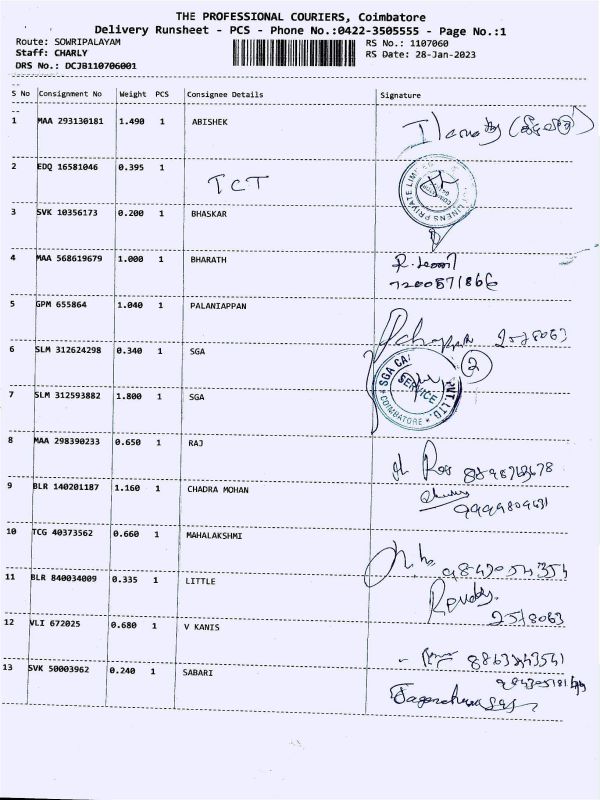 THE PROFESSIONAL COURIERS, Coimbatore
Delivery Runsheet - PCS - Phone No.:0422-3505555 - Page No.:1
Route: SOWRIPALAYAM RS No.: 1107060
Staff: CHARLY RS Date: 28-Jan-2023
DRS No.: DCJB110706001
S No Consignment No Weight PCS Consignee Details Signature
1 MAA 293130181 1.490 1 ABISHEK
2 EDQ 16581046 0.395 1 TCT
LINENS PRIVATE LIMITED
3 SVK 10356173 0.200 1 BHASKAR
4 MAA 568619679 1.000 1 BHARATH
7200871866
5 GPM 655864 1.040 1 PALANIAPPAN
6 SLM 312624298 0.340 1 SGA
2
SGA CA
SERVICE
PVT. LTD.
COIMBATORE
7 SLM 312593882 1.800 1 SGA
8 MAA 298390233 0.650 1 RAJ
9 BLR 140201187 1.160 1 CHADRA MOHAN
10 TCG 40373562 0.660 1 MAHALAKSHMI
11 BLR 840034009 0.335 1 LITTLE
12 VLI 672025 0.680 1 V KANIS
13 SVK 50003962 0.240 1 SABARI